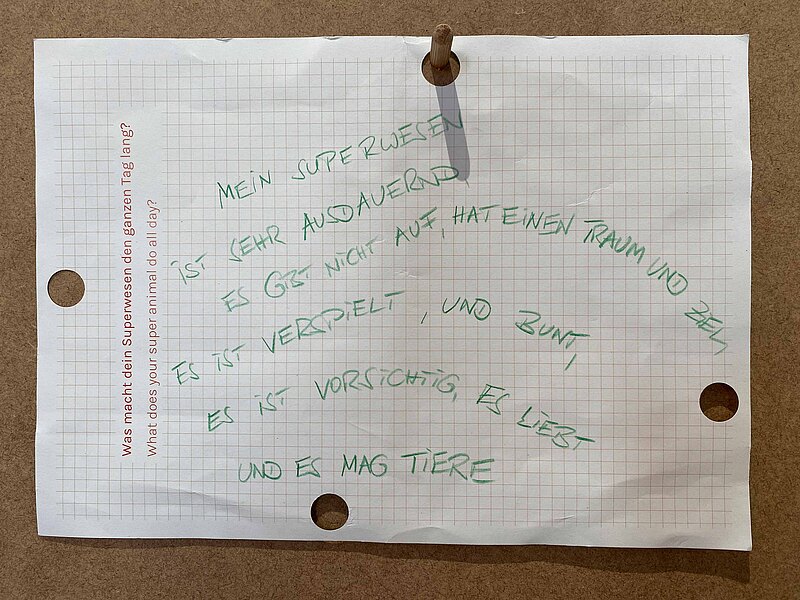 Was macht dein Superwesen den ganzen Tag lang?
What does your super animal do all day?
MEIN SUPERWESEN
IST SEHR AUSDAUERND,
ES GIBT NICHT AUF, HAT EINEN TRAUM UND ZIEL,
ES IST VERSPIELT, UND BUNT,
ES IST VORSICHTIG, ES LIEBT
UND ES MAG TIERE